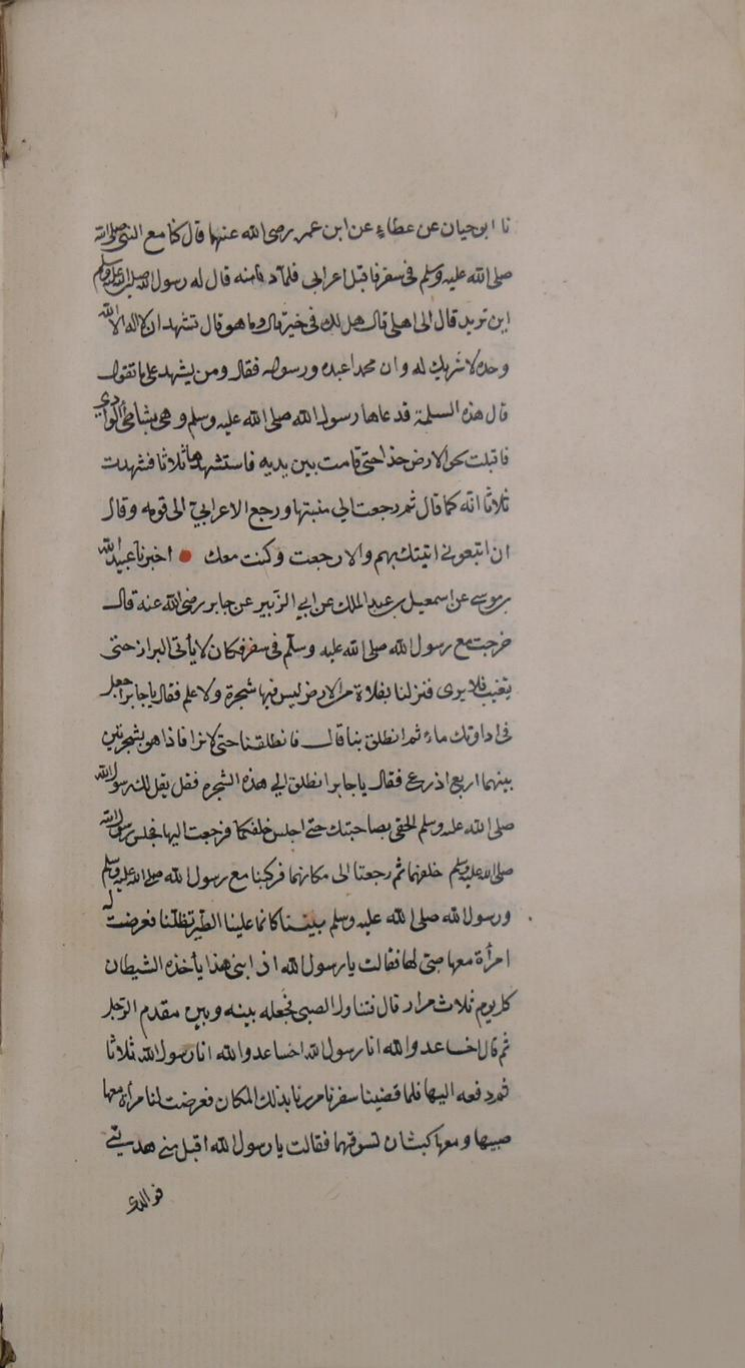 نا ابو حيان عن عطاء عن ابن عمر رضى الله عنهما قال كنا مع النبى صلى الله
صلى الله عليه وسلم فى سفر فاقبل اعرابى فلما دنا منه قال له رسول الله صلى الله عليه وسلم
اين تريد قال الى اهلى قال هل لك فى خير قال وما هو قال تشهد ان لا اله الا الله
وحده لا شريك له وان محمدا عبده ورسوله فقال ومن يشهد على ما تقول
قال هذه السلمة فدعاها رسول الله صلى الله عليه وسلم وهى بشاطئ الوادى
فاقبلت تخد الارض خدا حتى قامت بين يديه فاستشهدها ثلاثا فشهدت
ثلاثا انه كما قال ثم رجعت الى منبتها ورجع الاعرابى الى قومه وقال
ان اتبعونى اتيتك بهم والا رجعت وكنت معك • اخبرنا عبيد الله
بن موسى عن اسمعيل بن عبد الملك عن ابى الزبير عن جابر رضى الله عنه قال
خرجت مع رسول الله صلى الله عليه وسلم فى سفر فكان لا يأتى البراز حتى
يتغيب فلا يرى فنزلنا بفلاة من الارض ليس فيها شجرة ولا علم فقال يا جابر اجعل
فى اداوتك ماء ثم انطلق بنا قال فانطلقنا حتى لا نرا فاذا هو بشجرتين
بينهما اربع اذرع فقال يا جابر انطلق الى هذه الشجره فقل يقل لك رسول الله
صلى الله عليه وسلم الحقى بصاحبتك حتى اجلس خلفكما فرجعت اليها فجلس رسول الله
صلى الله عليه وسلم خلفهما ثم رجعتا الى مكانهما فركبنا مع رسول الله صلى الله عليه وسلم
ورسول الله صلى الله عليه وسلم بيننا كانما علينا الطير تظلنا فعرضت له
امرأة معها صبى لها فقالت يا رسول الله ان ابنى هذا يأخذه الشيطان
كل يوم ثلاث مرار قال فتناول الصبى فجعله بينه وبين مقدم الرحل
ثم قال اخسا عدو الله انا رسول الله اخسا عدو الله انا رسول الله ثلاثا
ثم دفعه اليها فلما قضينا سفرنا مررنا بذلك المكان فعرضت لنا مرأة معها
صبيها ومعها كبشان تسوقهما فقالت يا رسول الله اقبل منى هديتى
فوالذى